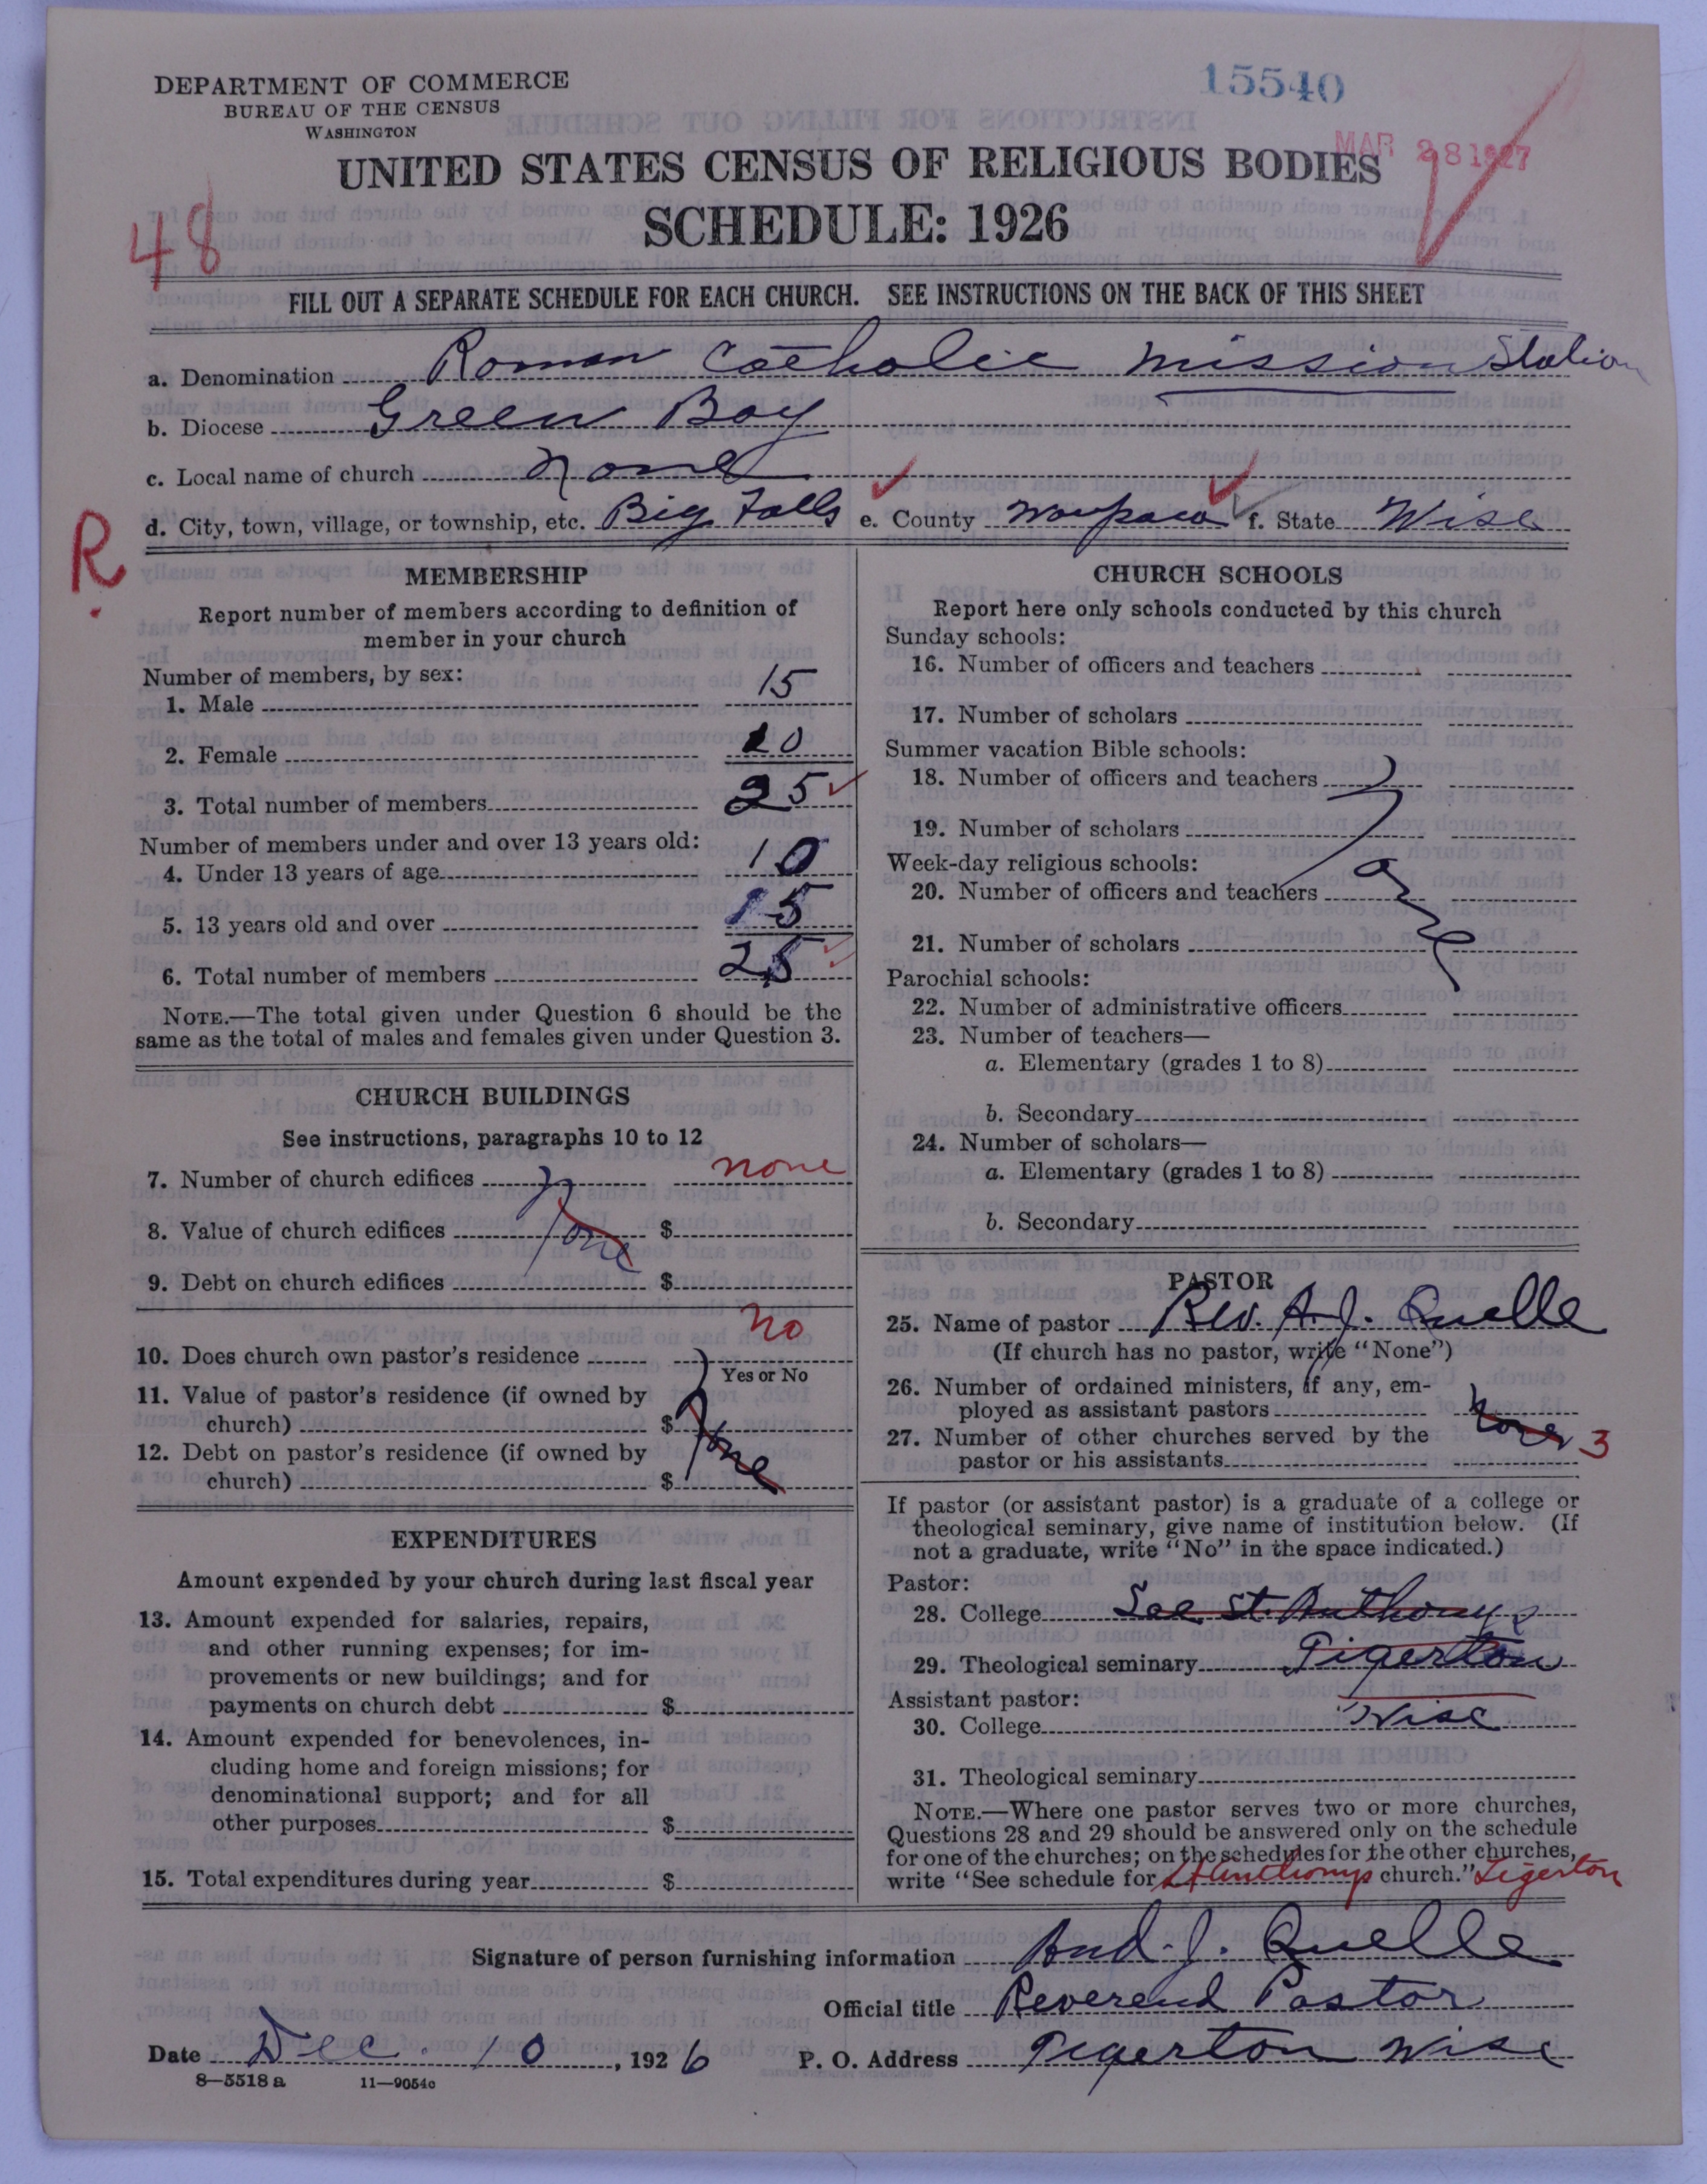 DEPARTMENT OF COMMERCE
BUREAU OF THE CENSUS
WASHINGTON
15540
MAR 28 1927
UNITED STATES CENSUS OF RELIGIOUS BODIES
SCHEDULE: 1926
48
FILL OUT A SEPARATE SCHEDULE FOR EACH CHURCH. SEE INSTRUCTIONS ON THE BACK OF THIS SHEET
a. Denomination Roman Catholic Mission Station
b. Diocese Green Bay
c. Local name of church None
d. City, town, village, or township, etc. Big Falls e. County Waupaca f. State Wisc
R
MEMBERSHIP
Report number of members according to definition of
member in your church
Number of members, by sex:
1. Male 15
2. Female 10
3. Total number of members 25
Number of members under and over 13 years old:
4. Under 13 years of age 10
5. 13 years old and over 15
6. Total number of members 25
NOTE.—The total given under Question 6 should be the
same as the total of males and females given under Question 3.
CHURCH BUILDINGS
See instructions, paragraphs 10 to 12
7. Number of church edifices none
8. Value of church edifices None $
9. Debt on church edifices $
10. Does church own pastor's residence no
Yes or No
11. Value of pastor's residence (if owned by
church) $ None
12. Debt on pastor's residence (if owned by
church) $
EXPENDITURES
Amount expended by your church during last fiscal year
13. Amount expended for salaries, repairs,
and other running expenses; for im-
provements or new buildings; and for
payments on church debt $
14. Amount expended for benevolences, in-
cluding home and foreign missions; for
denominational support; and for all
other purposes $
15. Total expenditures during year $
CHURCH SCHOOLS
Report here only schools conducted by this church
Sunday schools:
16. Number of officers and teachers
17. Number of scholars
Summer vacation Bible schools:
18. Number of officers and teachers
19. Number of scholars
None
Week-day religious schools:
20. Number of officers and teachers
21. Number of scholars
Parochial schools:
22. Number of administrative officers
23. Number of teachers—
a. Elementary (grades 1 to 8)
b. Secondary
24. Number of scholars—
a. Elementary (grades 1 to 8)
b. Secondary
PASTOR
25. Name of pastor Rev. A. J. Quelle
(If church has no pastor, write "None")
26. Number of ordained ministers, if any, em-
ployed as assistant pastors None
27. Number of other churches served by the
pastor or his assistants 3
If pastor (or assistant pastor) is a graduate of a college or
theological seminary, give name of institution below. (If
not a graduate, write "No" in the space indicated.)
Pastor:
28. College See St. Anthonys
29. Theological seminary Tigerton
Assistant pastor:
30. College Wisc
31. Theological seminary
NOTE.—Where one pastor serves two or more churches,
Questions 28 and 29 should be answered only on the schedule
for one of the churches; on the schedules for the other churches,
write "See schedule for St Anthonys church." Tigerton
Signature of person furnishing information And. J. Quelle
Official title Reverend Pastor
Date Dec. 10, 1926 P. O. Address Tigerton Wisc
8—5518 a 11—9054c